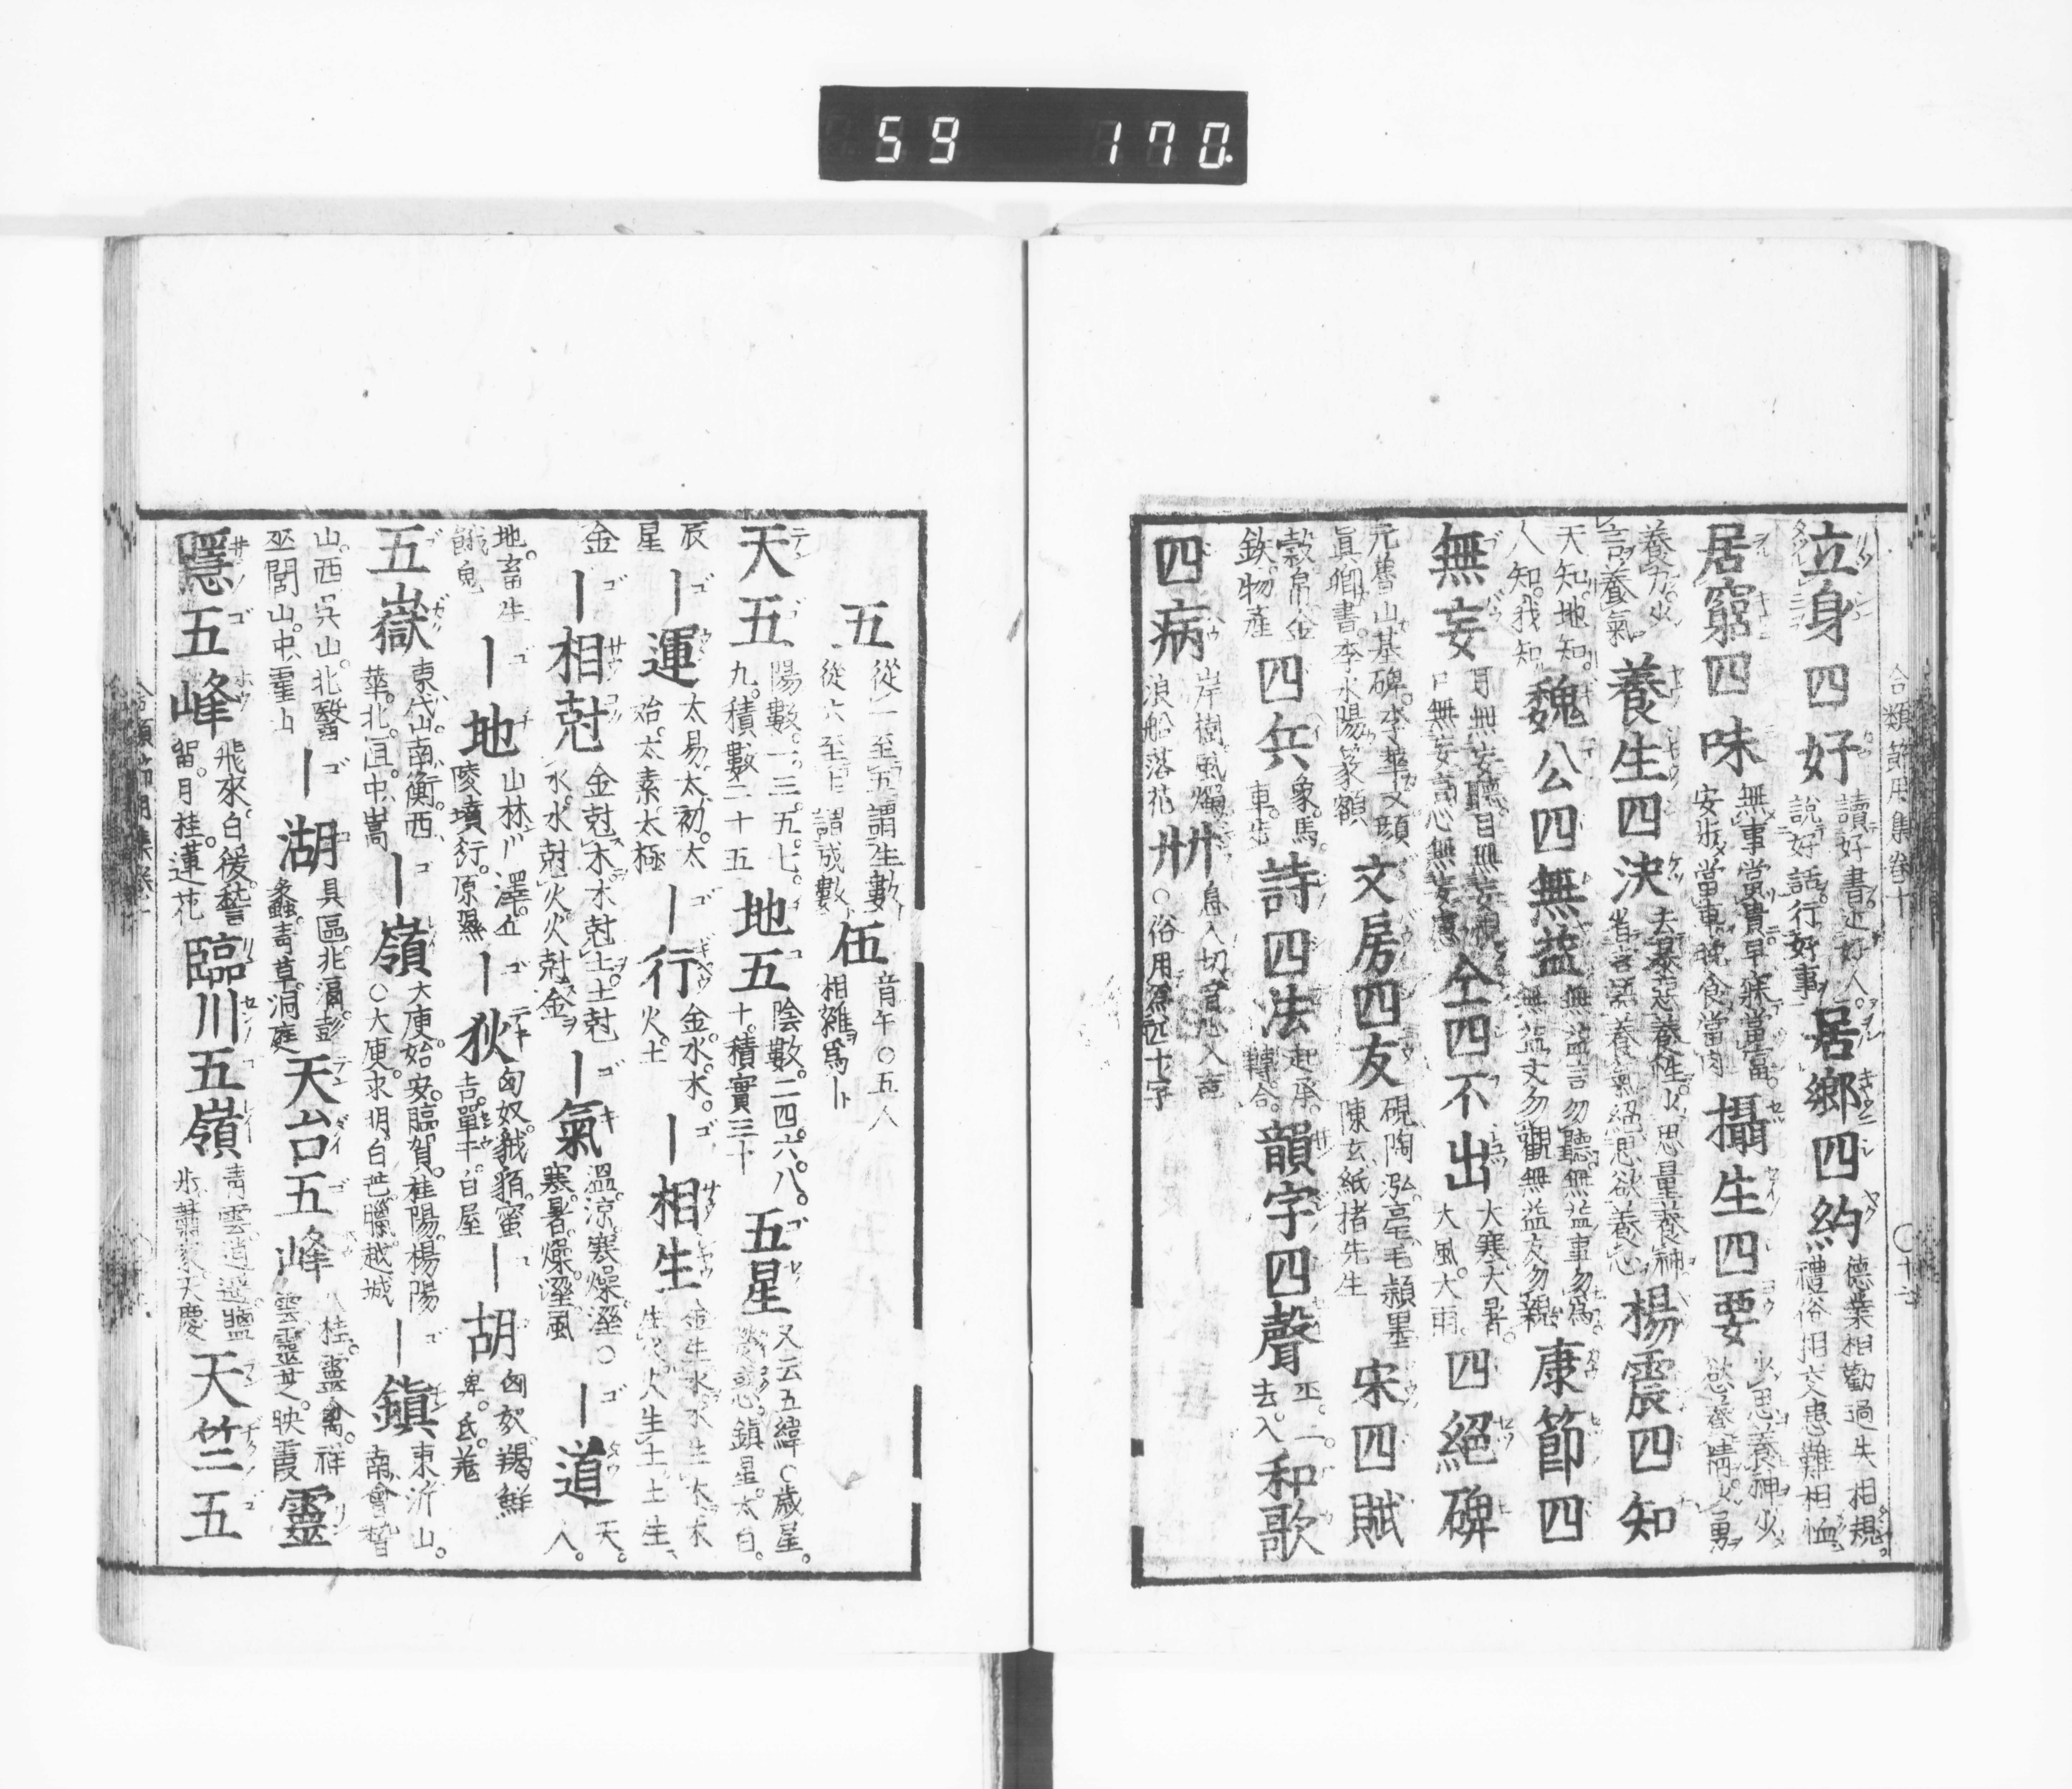 59 170
合類節用集卷十
立身四好 讀好書近好人。說好話行好事 居鄉四約 德業相勸過失相規。禮俗相交患難相恤
居窮四味 無事當貴早寐當富。安步當車晚食當肉 攝生四要 少思養神少慾養精。少勇
養力。少言養氣 養生四決 去暴惡養性。少思量養神。省言語養氣絕思欲養心 楊震四知
天知。地知。人知。我知 魏公四無益 無益言勿聽無益事勿爲。無益文勿觀無益友勿親 康節四
無妄 耳無妄聽目無妄視口無妄言心無妄慮 仝四不出 大寒大暑。大風大雨。 四絕碑
元魯山墓碑。李華文顏眞卿書。李水陽篆額 文房四友 硯陶泓。毫毛穎墨陳玄紙楮先生 宋四賦
穀帛金鉄。物產 四兵 象。馬。車。步 詩四法 起承。轉合。 韻字四聲 平。上。去。入 和歌
四病 岸樹風燭浪船落花 卌 息入切音 入声 ○俗用爲四十字
五 從一至五謂生數從六至十謂成數 伍 音午○五人相雜爲｜
天五 陽數。一。三。五。七。九。積數二十五 地五 陰數。二四。六。八。十。積實三十 五星 又云五緯○歲星。熒惑。鎮星。太白。
辰星 ｜運 太易。太初。太始。太素。太極 ｜行 金。水。木。火。土 ｜相生 金生水水生木木生火火生土土生
金 ｜相尅 金尅木木尅土。土尅水。水尅火火尅金 ｜氣 溫。涼。寒燥溼○寒。暑。燥。溼風 ｜道 天。人。
地。畜生餓鬼 ｜地 山林川澤。丘陵墳衍。原隰 ｜狄 匈奴。戎貊。蜜吉。單于。白屋 ｜胡 匈奴。羯鮮卑。氐。羌
五嶽 東岱山。南衡。西華。北恒。中嵩 ｜嶺 大庾。始安。臨賀。桂陽揭陽○大庾 越城 ｜鎮 東沂山。南會稽
山。西吳山。北醫巫閭山。中霍山 ｜湖 具區。洮滆。彭蠡。靑草。洞庭 天台五峰 八桂。靈禽。祥雲靈芝。映霞 靈
隱五峰 飛來。白猨。稽留。月桂。蓮花 臨川五嶺 靑雲逍遥鹽步蕭家天慶 天竺五